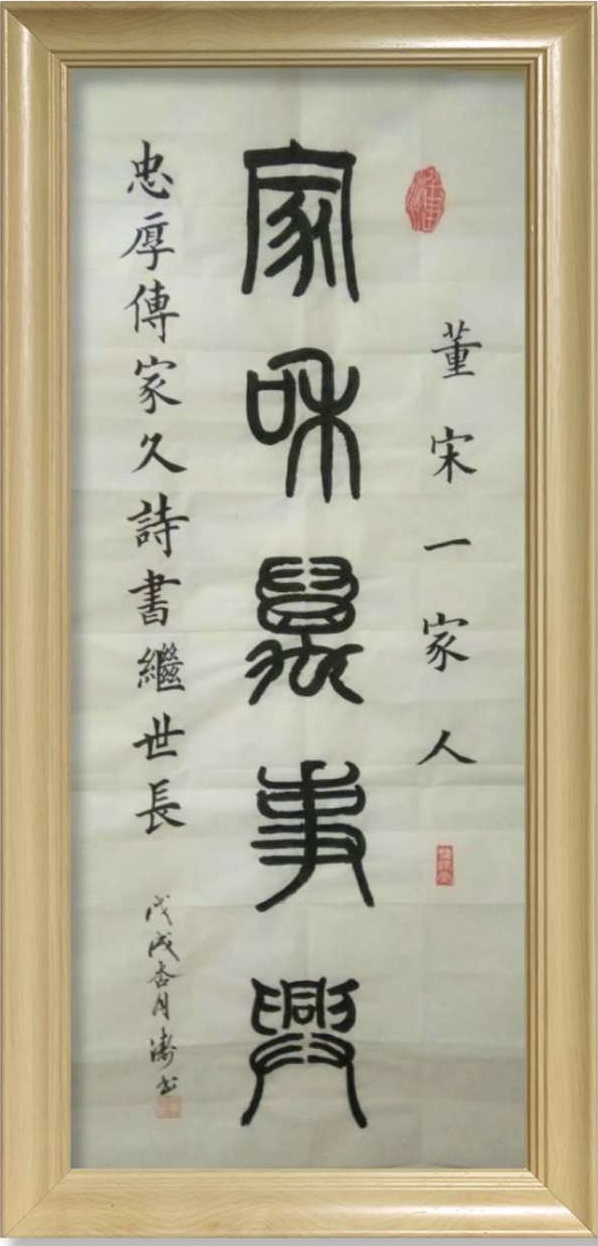 董宋一家人
家和萬事興
忠厚傳家久詩書繼世長
戊戌杏月濤书